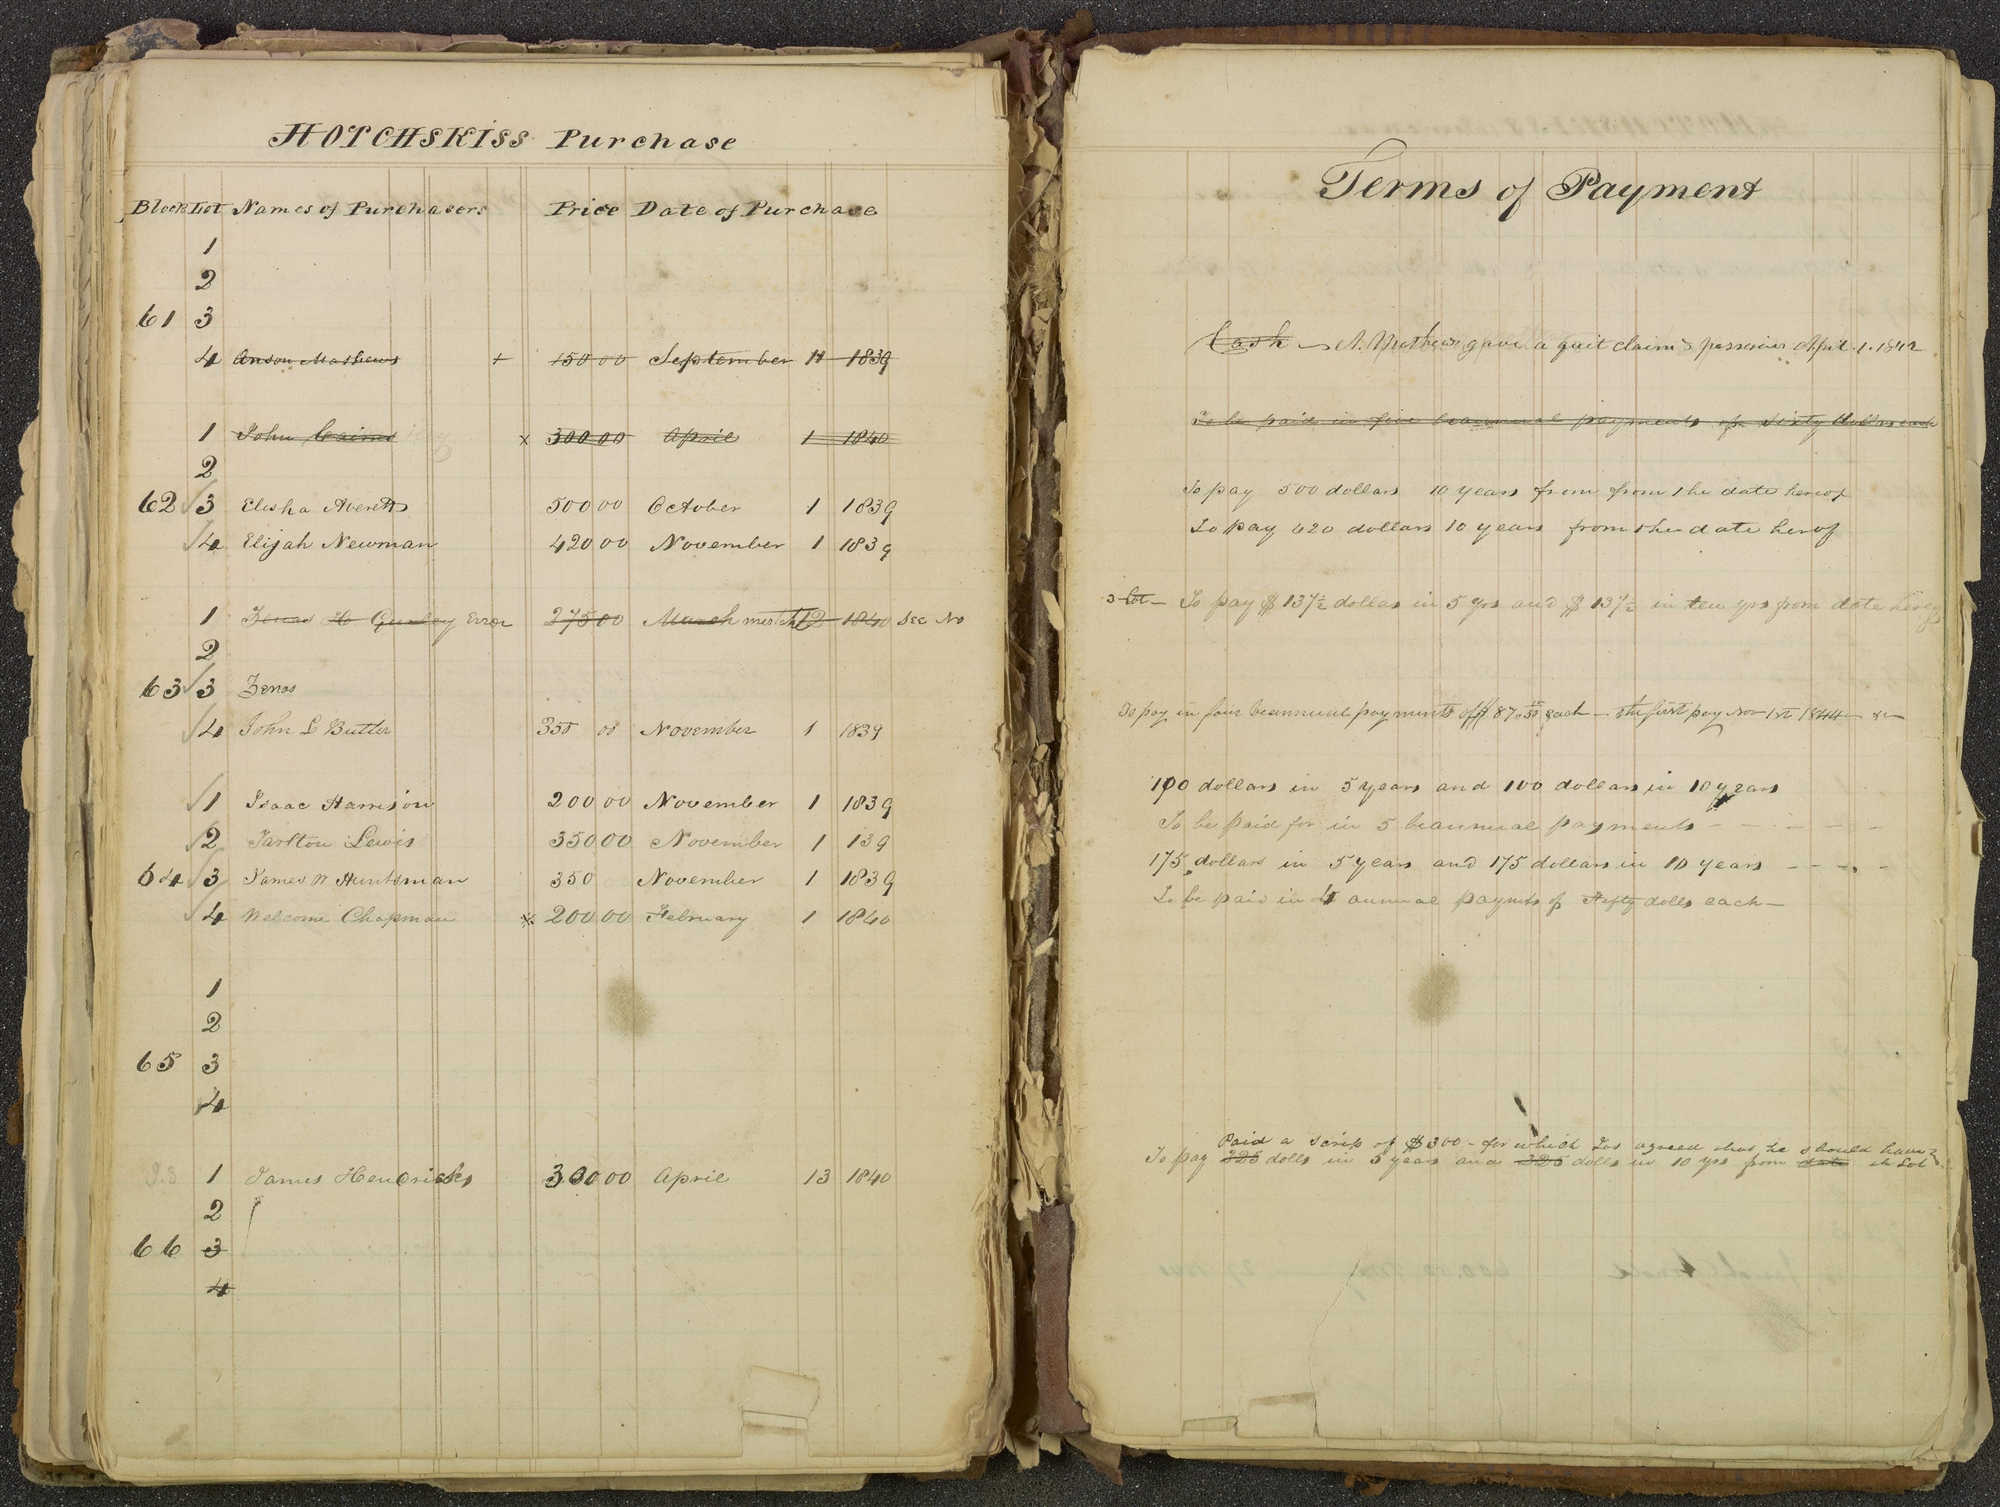 HOTCHSKISS Purchase
Block Lot Names of Purchasers Price Date of Purchase
1
2
61 3
4 Anson Mathews + 150 00 September 11 1839
1 John Cairns x 300 00 April 1 1840
2
62 3 Elisha Averett 500 00 October 1 1839
4 Elijah Newman 420 00 November 1 1839
1 Zenas H Gurley Error 275 00 March 12 1840 See No
2
63 3 Zenos
4 John L Butler 350 00 November 1 1839
1 Isaac Harrison 200 00 November 1 1839
2 Tarlton Lewis 350 00 November 1 139
64 3 James W Huntsman 350 November 1 1839
4 Welcome Chapman 200 00 February 1 1840
1
2
65 3
4
1 James Hendricks 300 00 April 13 1840
2
66 3
4
Terms of Payment
Cash — A. Mathews gave a quit claim & possession April. 1. 1842
To be paid in five beannual payments of sixty dollars each
To pay 500 dollars 10 years from from the date hereof
To pay 420 dollars 10 years from the date herof
3 lot — To pay $ 137½ dollas in 5 yrs and $ 137½ in ten yrs from date hereof
To pay in four beannual payments of $ 87.50 each — the first pay Nov 1st 1844 — &c —
100 dollars in 5 years and 100 dollars in 10 years
To be paid for in 5 beannual payments - - - - -
175 dollars in 5 years and 175 dollars in 10 years - - - -
To be paid in 4 annual paymts of Fifty dolls each —
Paid a scrip of $300 - for which Jos agreed that he should have
To pay 325 dolls in 5 years and 325 dolls in 10 yrs from date th Lot